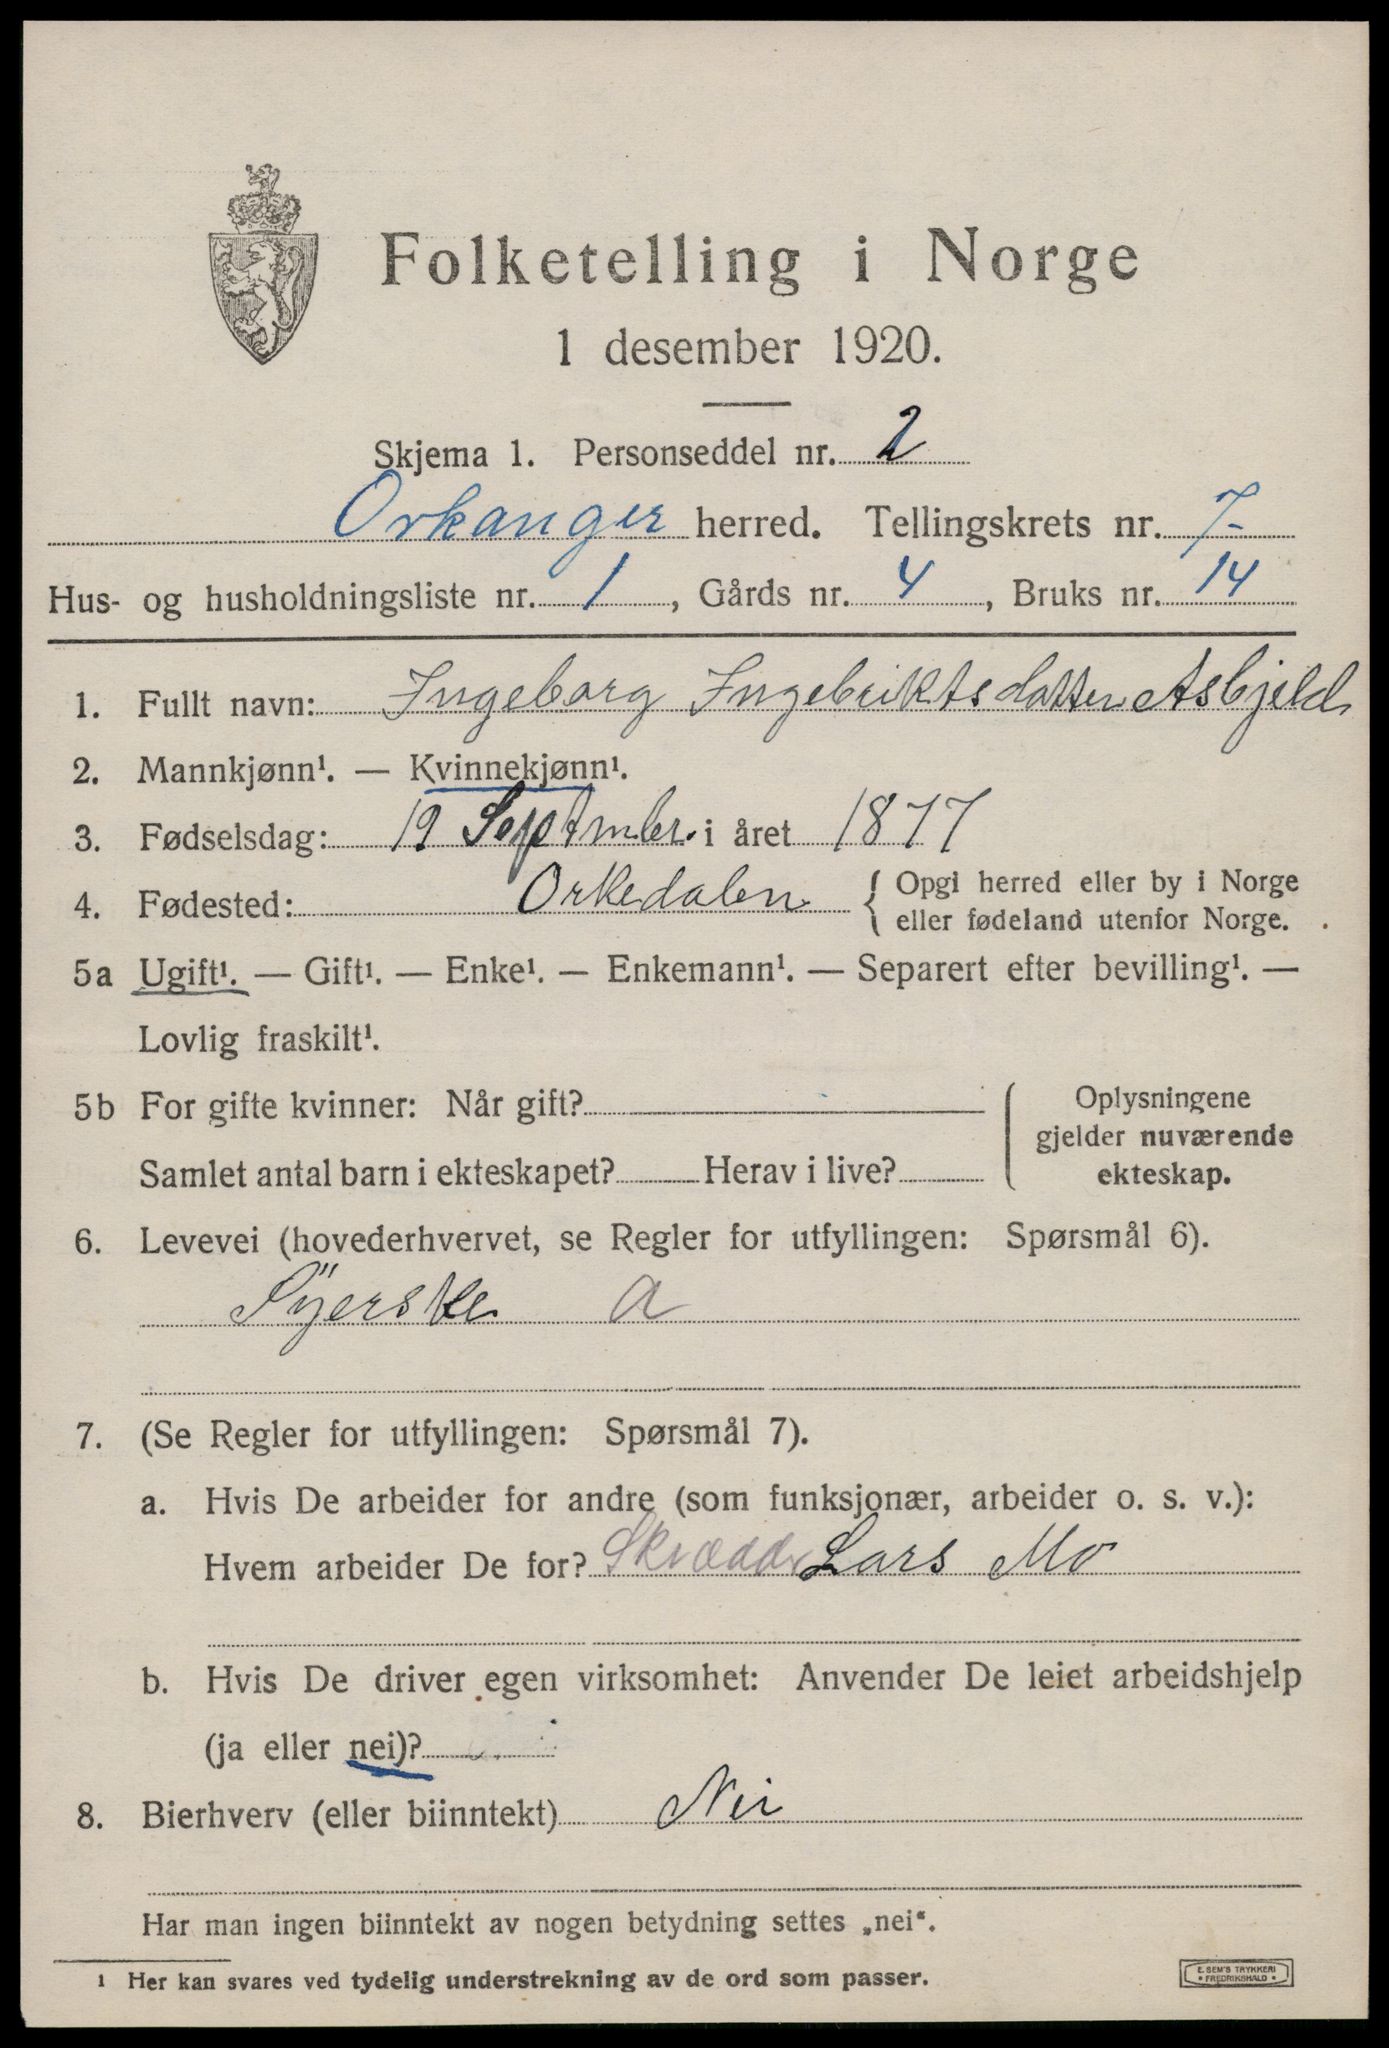 Folketelling i Norge
1 desember 1920.
Skjema 1. Personseddel nr. 2
Orkanger herred. Tellingskrets nr. 7-
Hus- og husholdningsliste nr. 1, Gårds nr. 4, Bruks nr. 14
1. Fullt navn: Ingeborg Ingebriktsdatter Asbjeld
2. Mannkjønn¹. — Kvinnekjønn¹.
3. Fødselsdag: 19 September i året 1877
4. Fødested: Orkedalen { Opgi herred eller by i Norge
eller fødeland utenfor Norge.
5a Ugift¹. — Gift¹. — Enke¹. — Enkemann¹. — Separert efter bevilling¹. —
Lovlig fraskilt¹.
5b For gifte kvinner: Når gift?
Samlet antal barn i ekteskapet? Herav i live?
Oplysningene
gjelder nuværende
ekteskap.
6. Levevei (hovederhvervet, se Regler for utfyllingen: Spørsmål 6).
Syerske a
7. (Se Regler for utfyllingen: Spørsmål 7).
a. Hvis De arbeider for andre (som funksjonær, arbeider o. s. v.):
Hvem arbeider De for? Skrædder Lars Mo
b. Hvis De driver egen virksomhet: Anvender De leiet arbeidshjelp
(ja eller nei)?
8. Bierhverv (eller biinntekt) Nei
Har man ingen biinntekt av nogen betydning settes „nei“.
1 Her kan svares ved tydelig understrekning av de ord som passer.
E. SEM'S TRYKKERI
• FREDRIKSHALD •